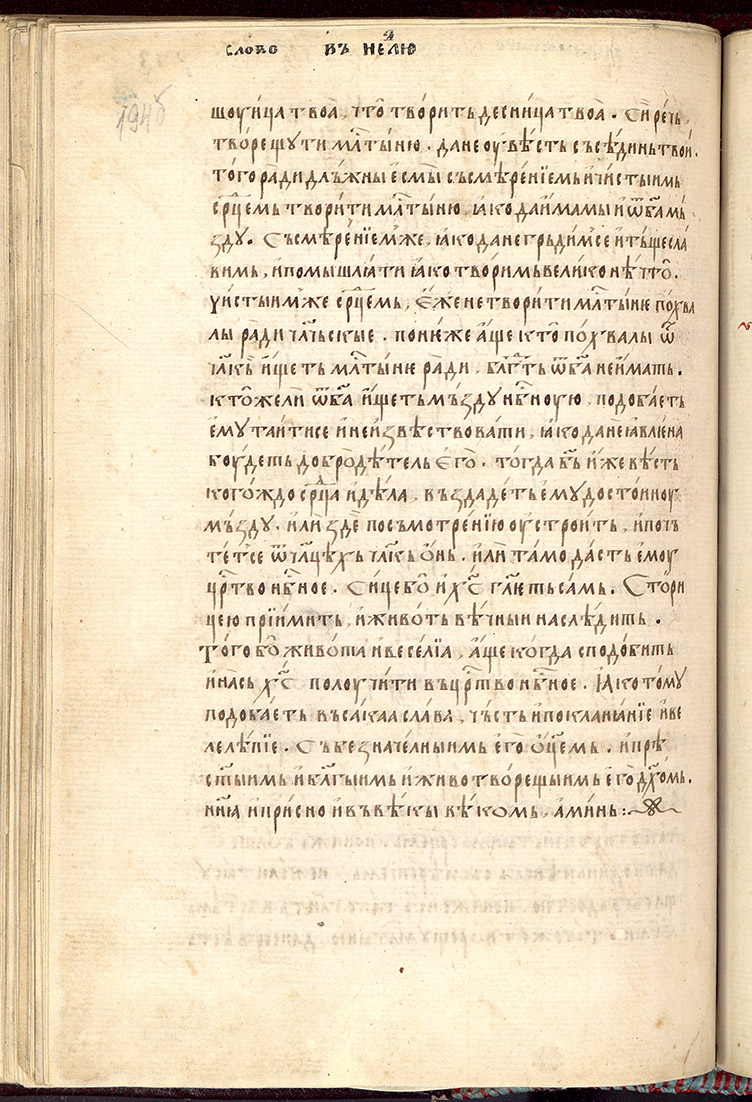 слово въ нелю
194б
шоуица твоа, что творить десница твоа. Си речь,
творещути млтыню. дане оувѣсть съсѣдинь твои.
того ради длъжны есмы съсмѣренїемь и чистыимь
срцемь творити млтыню, іако да имамы и ѿ ба мь
зду. Съсмѣренїем же, іако да не гръдим се и тъщесла
вимь, и помышлꙗти іако творимь велико нѣчто.
чистыим же срцемь, Еже не творити млтыню похва
лы ради чльскые. понюже аще кто похвалы ѿ
члкь ищеть млтыню ради, блгть ѿ ба не имать.
кто же ли ѿ ба ищеть мъзду нбную, подобаеть
ему таити се и не извѣствовати, іако да не ꙗвлена
боудеть добродѣтель Его. тогда бь иже вѣсть
когождо срца и дѣла, въздадеть ему достоиноу
мъзду. или зде посъмотренїю оустроить, и почь
тет се ѿ члцѣхь члкь онь. или тамо дасть емоу
цртво нбное. Сице бо и хс глють самь. Стори
цею прїимить, и животь вѣчныи наслѣдить.
Того бо живота и веселїа, аще когда сподобить
и нась хс полоучити въ цртво нбное. Іако тому
подобаеть въсакаа слава, чьсть и покланꙗнїе и ве
лелѣпїе. Съ безначелныимь его оцемь. и прѣ
стыимь и блгыимь и животворещыимь его дхомь.
ннꙗ и присно и въ вѣкы вѣкомь, аминь:~